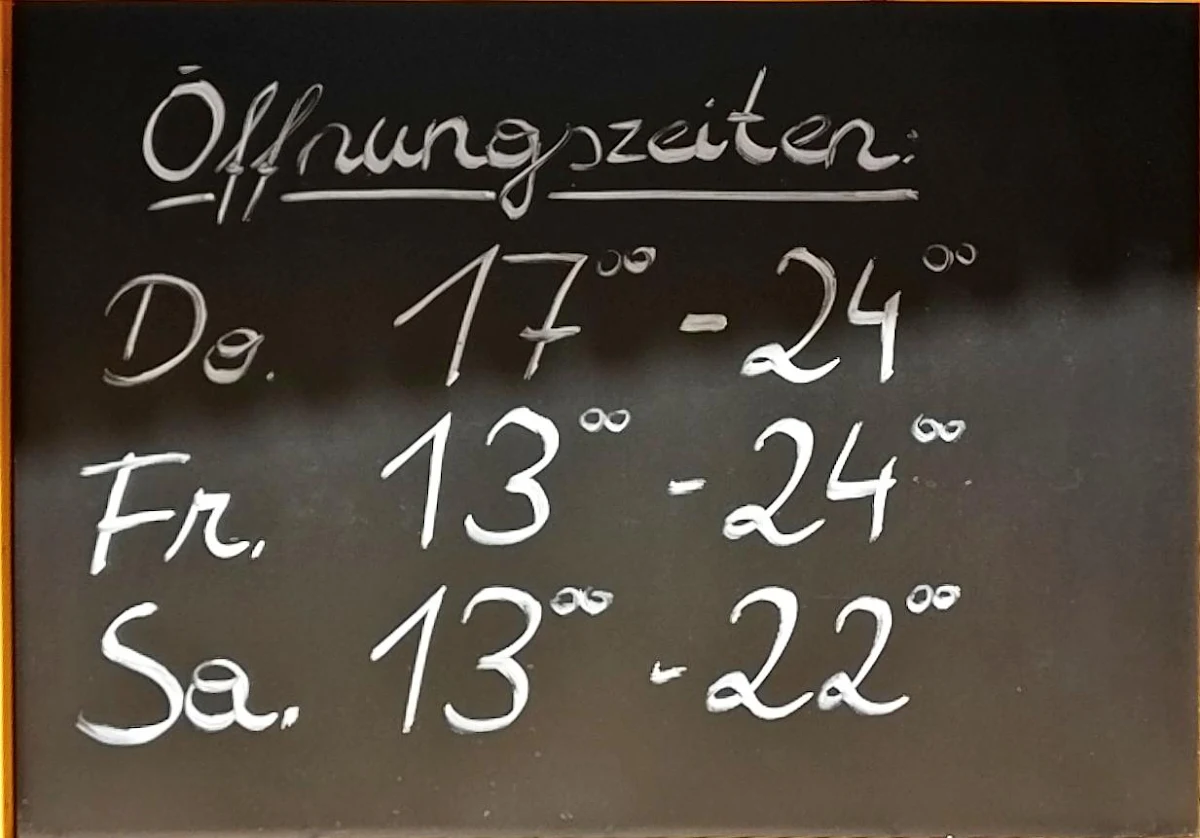 Öffnungszeiten:
Do. 17⁰⁰ - 24⁰⁰
Fr. 13⁰⁰ - 24⁰⁰
Sa. 13⁰⁰ - 22⁰⁰